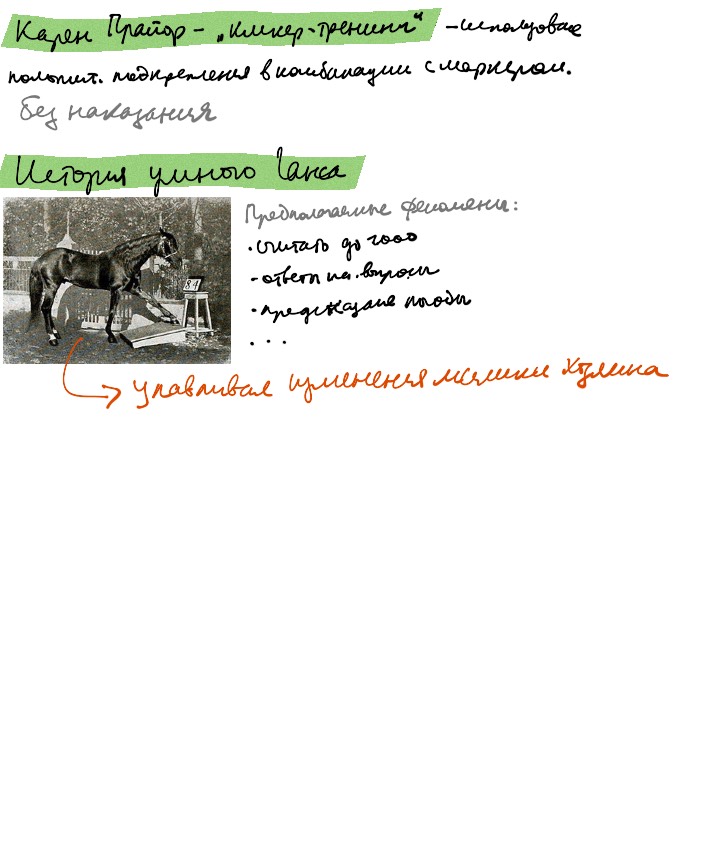 Карен Прайор - „кликер-тренинг“ - использовае
полоѝит. подкрепления в комбинации с маркером.
без наказания
История умного Ганса
Предполагаемые феномены:
• считать до 1000
• ответы на вопросы
• предсказание погоды
• • •
84
улавливал изменения мимики хозяина